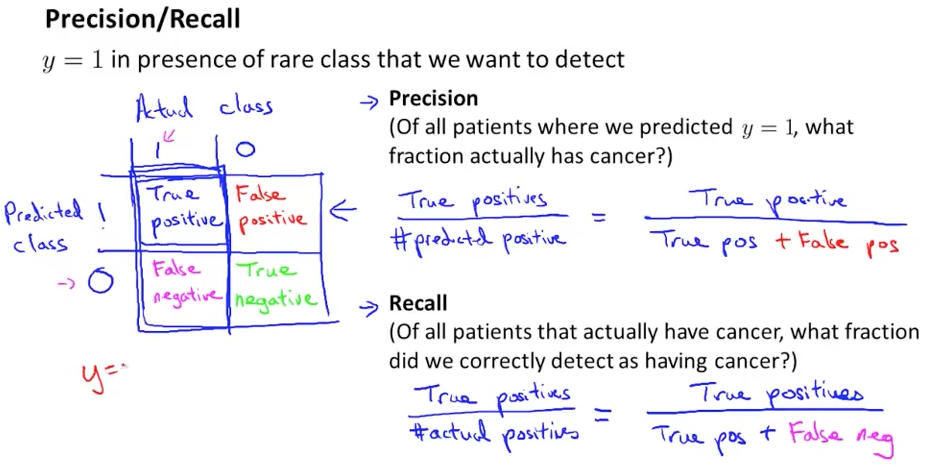 Precision/Recall
y = 1 in presence of rare class that we want to detect
Actual class
1 0
Predicted class
1
0
True positive
False positive
False negative
True negative
y=
→ Precision
(Of all patients where we predicted y = 1, what
fraction actually has cancer?)
← True positives / #predicted positive = True positive / True pos + False pos
→ Recall
(Of all patients that actually have cancer, what fraction
did we correctly detect as having cancer?)
True positives / #actual positives = True positives / True pos + False neg